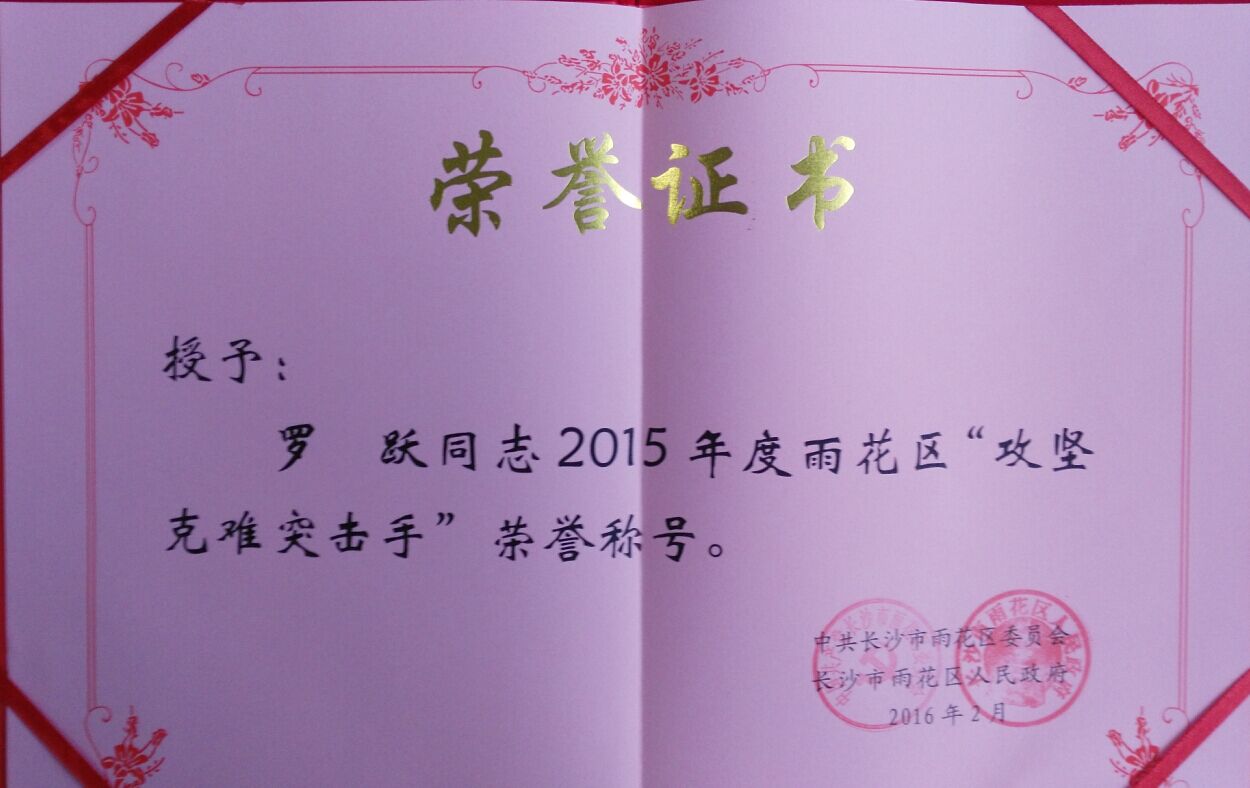 荣誉证书
授予：
罗 跃同志2015年度雨花区“攻坚
克难突击手”荣誉称号。
中共长沙市雨花区委员会
长沙市雨花区人民政府
2016年2月